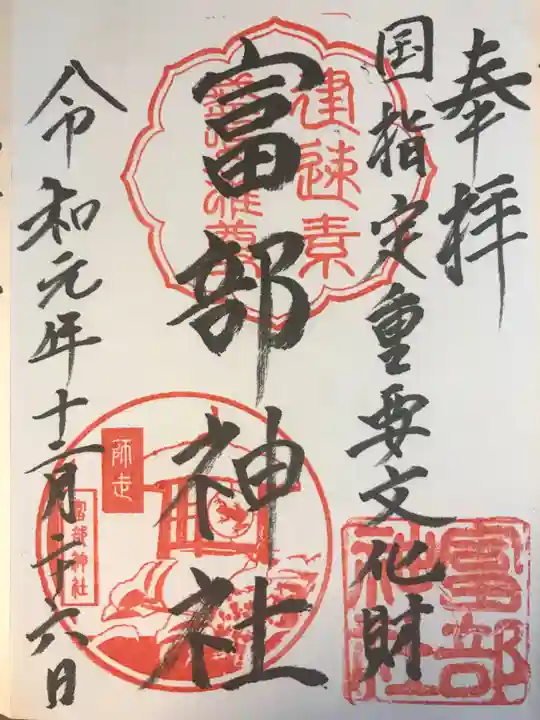 奉拝
国指定重要文化財
富部神社
建速素
盞嗚尊
師走
富部神社
富部
神社
令和元年十二月二十六日